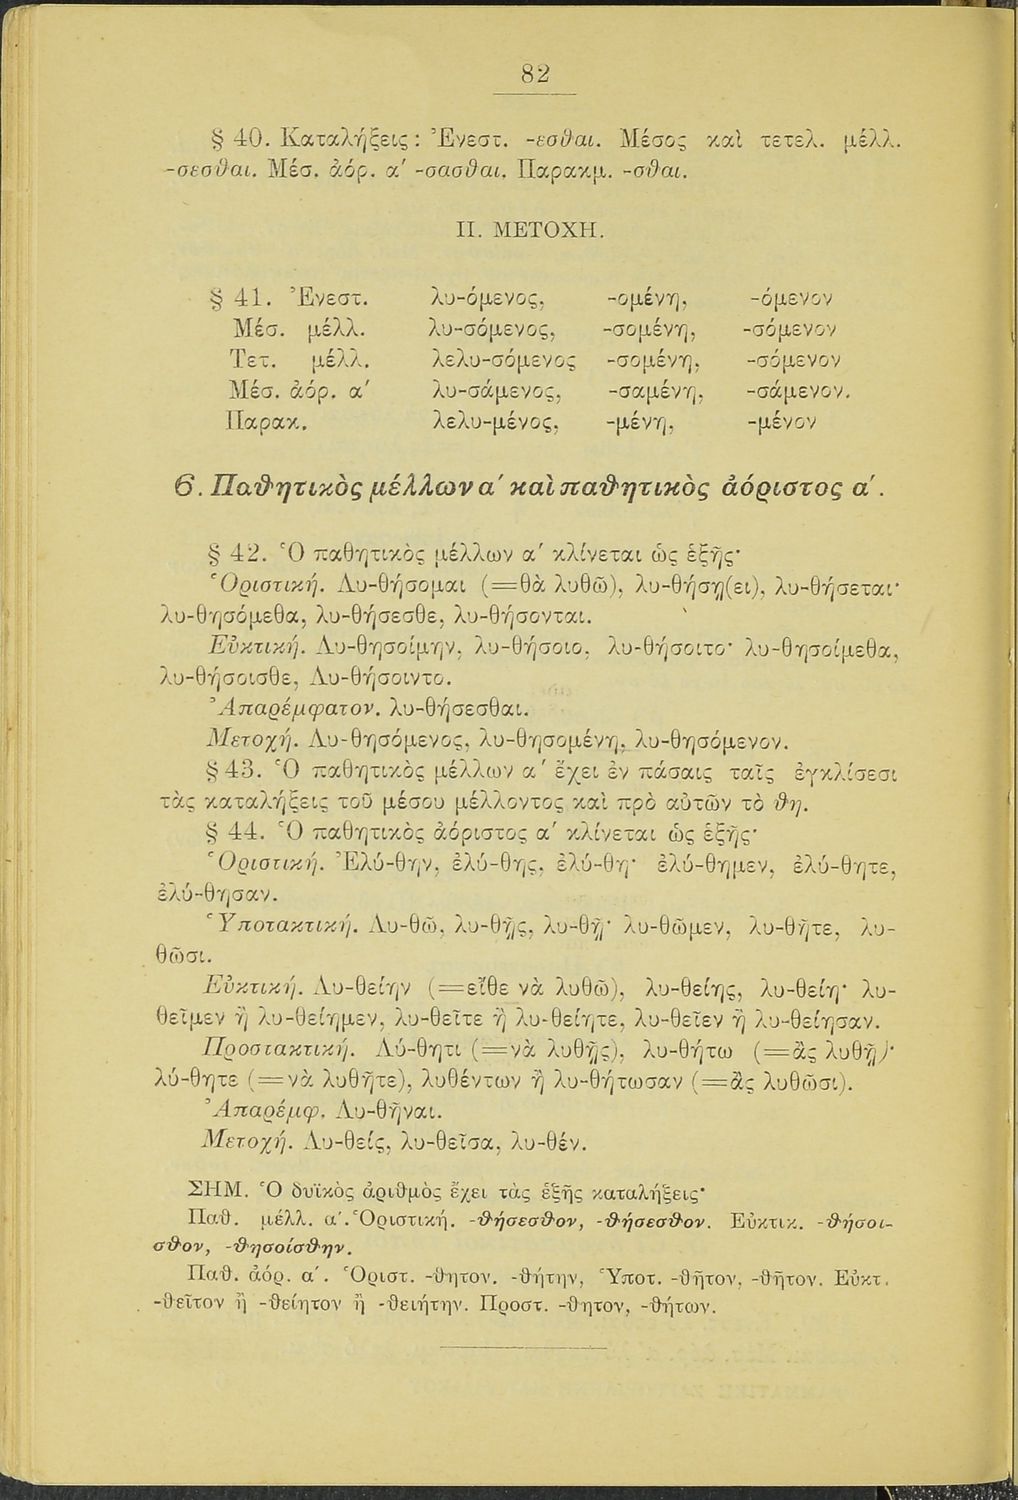 82
§ 40. Καταλήξεις : Ἐνεστ. -εσθαι. Μέσος καὶ τετελ. μέλλ.
-σεσθαι. Μέσ. ἀόρ. α΄ -σασθαι. Παρακμ. -σθαι.
II. ΜΕΤΟΧΗ.
§ 41. Ἐνεστ. λυ-όμενος, -ομένη, -όμενον
Μέσ. μέλλ. λυ-σόμενος, -σομένη, -σόμενον
Τετ. μέλλ. λελυ-σόμενος -σομένη, -σόμενον
Μέσ. ἀόρ. α΄ λυ-σάμενος, -σαμένη, -σάμενον.
Παρακ. λελυ-μένος, -μένη, -μένον
6. Παθητικὸς μέλλων α΄ καὶ παθητικὸς ἀόριστος α΄.
§ 42. Ὁ παθητικὸς μέλλων α΄ κλίνεται ὡς ἑξῆς·
Ὁριστική. Λυ-θήσομαι (=θὰ λυθῶ), λυ-θήσῃ(ει), λυ-θήσεται·
λυ-θησόμεθα, λυ-θήσεσθε, λυ-θήσονται.
Εὐκτική. Λυ-θησοίμην, λυ-θήσοιο, λυ-θήσοιτο· λυ-θησοίμεθα,
λυ-θήσοισθε, Λυ-θήσοιντο.
Ἀπαρέμφατον. λυ-θήσεσθαι.
Μετοχή. Λυ-θησόμενος, λυ-θησομένη, λυ-θησόμενον.
§ 43. Ὁ παθητικὸς μέλλων α΄ ἔχει ἐν πάσαις ταῖς ἐγκλίσεσι
τὰς καταλήξεις τοῦ μέσου μέλλοντος καὶ πρὸ αὐτῶν τὸ θη.
§ 44. Ὁ παθητικὸς ἀόριστος α΄ κλίνεται ὡς ἑξῆς·
Ὁριστική. Ἐλύ-θην, ἐλύ-θης, ἐλύ-θη· ἐλύ-θημεν, ἐλύ-θητε,
ἐλύ-θησαν.
Ὑποτακτική. Λυ-θῶ, λυ-θῇς, λυ-θῇ· λυ-θῶμεν, λυ-θῆτε, λυ-
θῶσι.
Εὐκτική. Λυ-θείην (=εἴθε νὰ λυθῶ), λυ-θείης, λυ-θείη· λυ-
θεῖμεν ἢ λυ-θείημεν, λυ-θεῖτε ἢ λυ-θείητε, λυ-θεῖεν ἢ λυ-θείησαν.
Προστακτική. Λύ-θητι (=νὰ λυθῇς), λυ-θήτω (=ἂς λυθῇ)·
λύ-θητε (=νὰ λυθῆτε), λυθέντων ἢ λυ-θήτωσαν (=ἂς λυθῶσι).
Ἀπαρέμφ. Λυ-θῆναι.
Μετοχή. Λυ-θείς, λυ-θεῖσα, λυ-θέν.
ΣΗΜ. Ὁ δυϊκὸς ἀριθμὸς ἔχει τὰς ἑξῆς καταλήξεις·
Παθ. μέλλ. α΄. Ὁριστική. -θήσεσθον, -θήσεσθον. Εὐκτικ. -θήσοι-
σθον, -θησοίσθην.
Παθ. ἀόρ. α΄. Ὁριστ. -θητον. -θήτην, Ὑποτ. -θῆτον, -θῆτον. Εὐκτ.
-θεῖτον ἢ -θείητον ἢ -θειήτην. Προστ. -θητον, -θήτων.